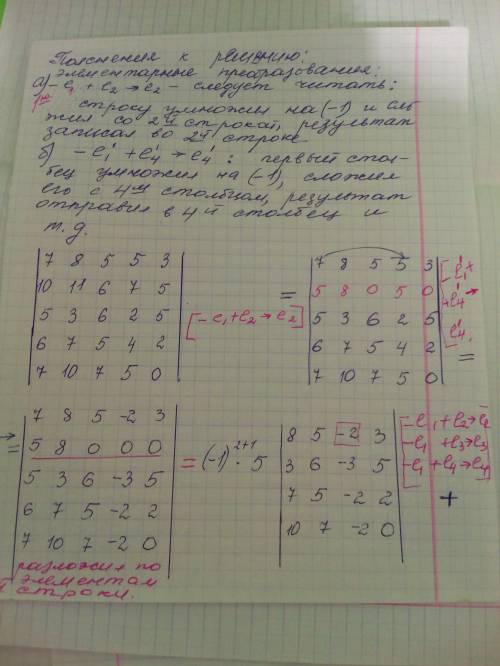 Пояснения к решению:
элементарные преобразования:
а) -e₁ + e₂ → e₂ - следует читать:
1ую строку умножил на (-1) и сло-
жил со 2ой строкой, результат
записал во 2й строке
б) -e₁' + e₄' → e₄' : первый стол-
бец умножил на (-1), сложил
его с 4ым столбцом, результат
отправил в 4й столбец и
т.д.
7 8 5 5 3
10 11 6 7 5
5 3 6 2 5
6 7 5 4 2
7 10 7 5 0
[-e₁+e₂→e₂]
=
7 8 5 5 3
5 8 0 5 0
5 3 6 2 5
6 7 5 4 2
7 10 7 5 0
[-e₁'+
+e₄'→
e₄'
=
→
=
7 8 5 -2 3
5 8 0 0 0
5 3 6 -3 5
6 7 5 -2 2
7 10 7 -2 0
= (-1)²⁺¹ · 5
8 5 -2 3
3 6 -3 5
7 5 -2 2
10 7 -2 0
-e₁+e₂→e₂
-e₁+e₃→e₃
-e₁+e₄→e₄
+
разложил по
элементам
строки.